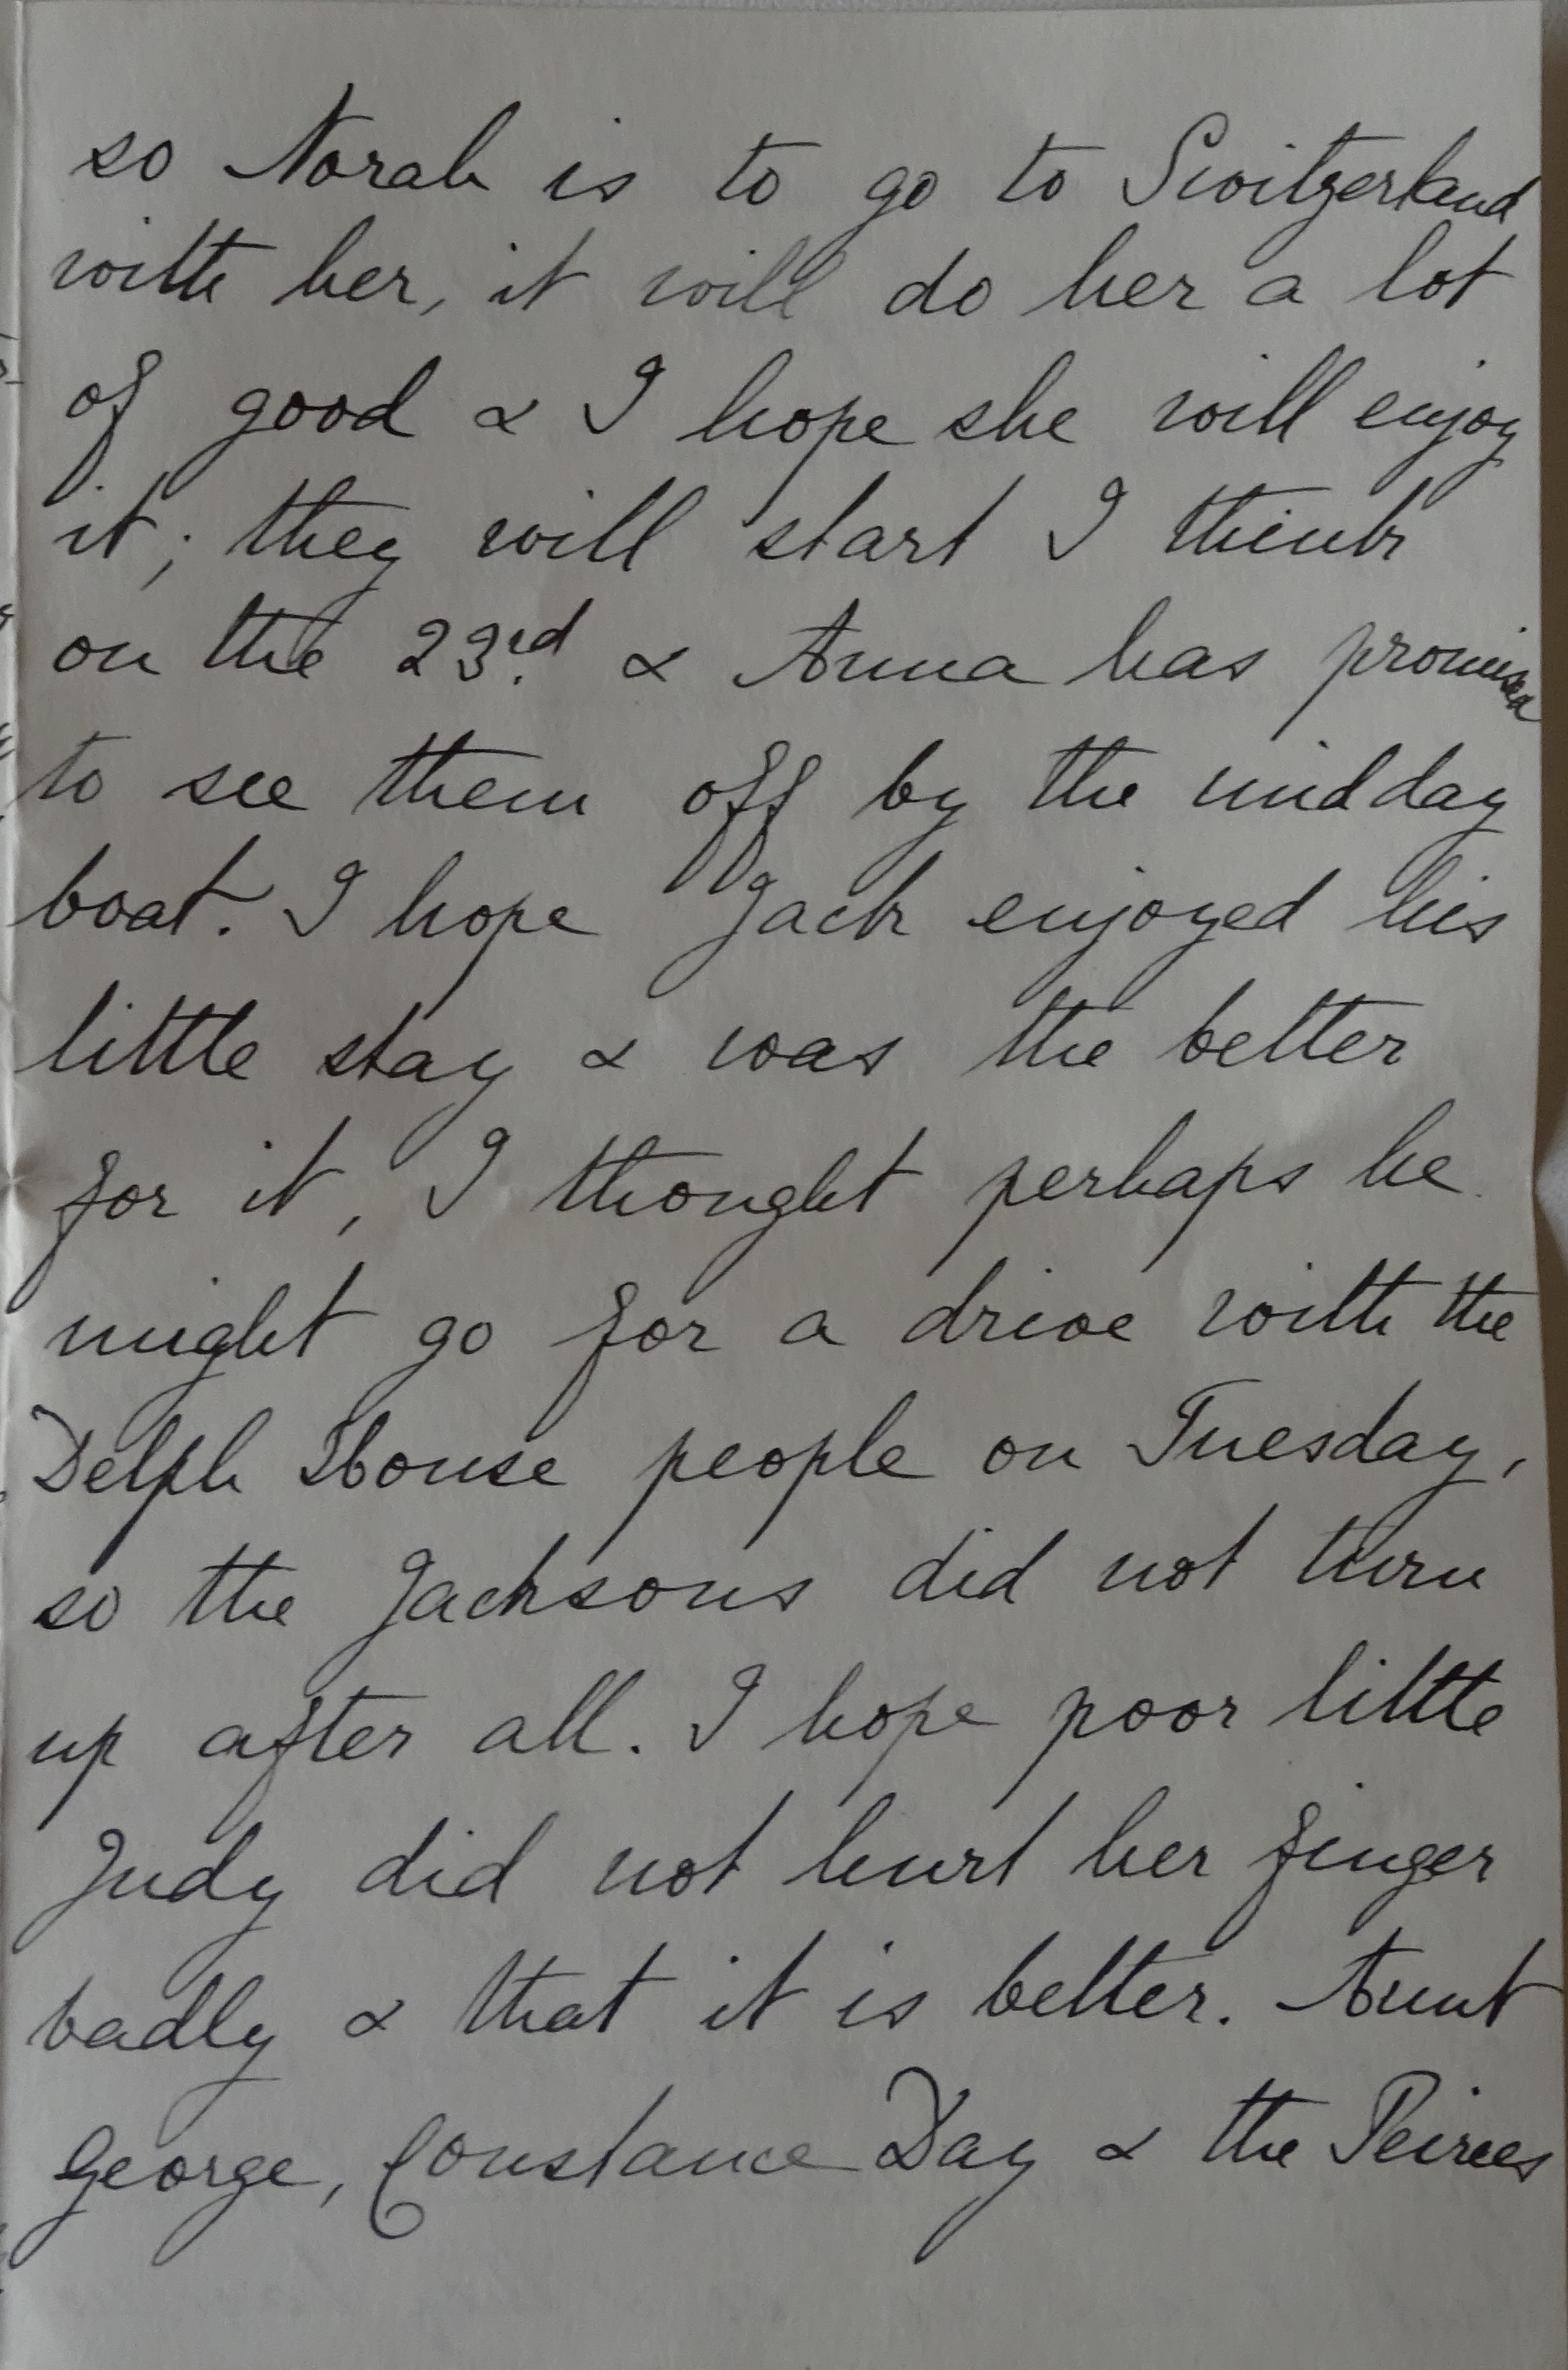 so Norah is to go to Switzerland
with her, it will do her a lot
of good & I hope she will enjoy
it; they will start I think
on the 23rd. & Anna has promised
to see them off by the midday
boat. I hope Jack enjoyed his
little stay & was the better
for it, I thought perhaps he
might go for a drive with the
Delph House people on Tuesday,
so the Jacksons did not turn
up after all. I hope poor little
Judy did not hurt her finger
badly & that it is better. Aunt
George, Constance Day & the Peirces